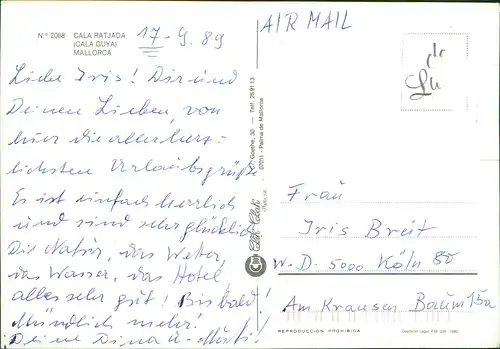 Nº 2068 CALA RATJADA
(CALA GUYA)
MALLORCA
17-9.89
Liebe Iris! Dir und
Deinen Lieben, von
hier die allerherz-
lichsten Urlaubsgrüße
Es ist einfach herrlich
und sind sehr glücklich
Die Natur, das Wetter,
das Wasser, das Hotel
alles sehr gut! Bis bald!
Mündlich mehr!
Deine Dina u.
C/. Goethe, 30 — Telf. 28 91 13
07011 - Palma de Mallorca
AIR MAIL
Frau
Iris Breit
W.D-5000 Köln 80
Am Krausen Baum 15a
REPRODUCCION PROHIBIDA